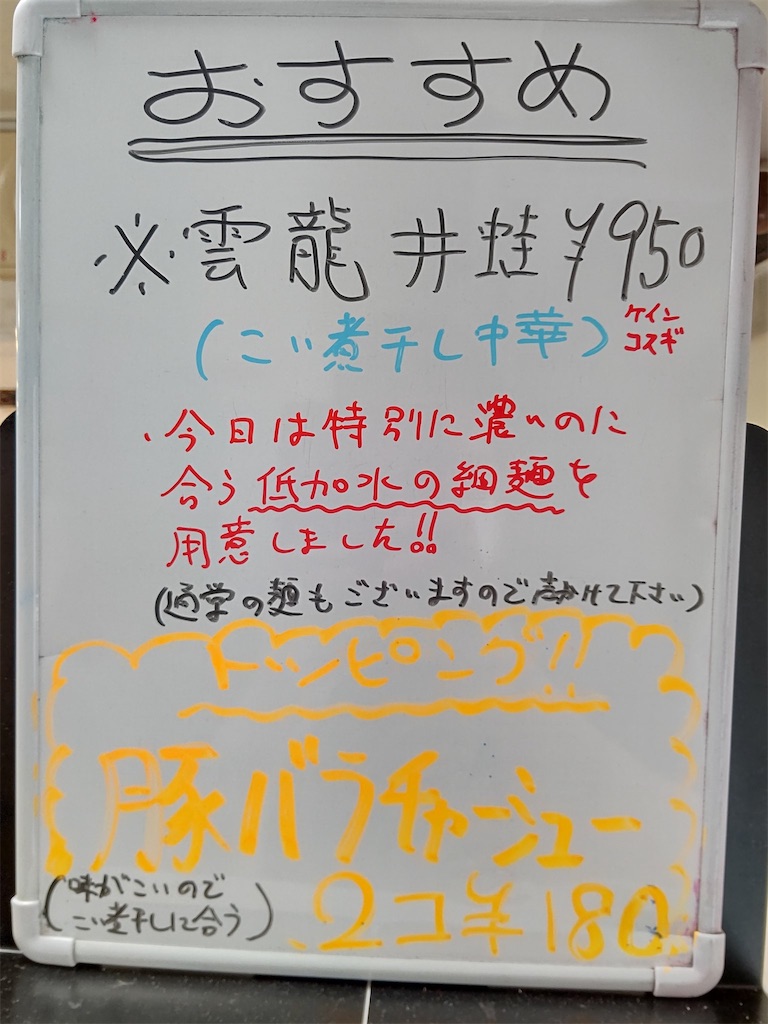 おすすめ
※雲龍 井蛙 ¥950
(こい煮干し中華)
ケイン
コスギ
・今日は特別に濃いのに
合う低加水の細麺を
用意しました!!
(通学の麺もございますので声かけて下さい)
トッピング!!
豚バラチャーシュー
2コ¥180
(味がこいので
こい煮干しに合う)